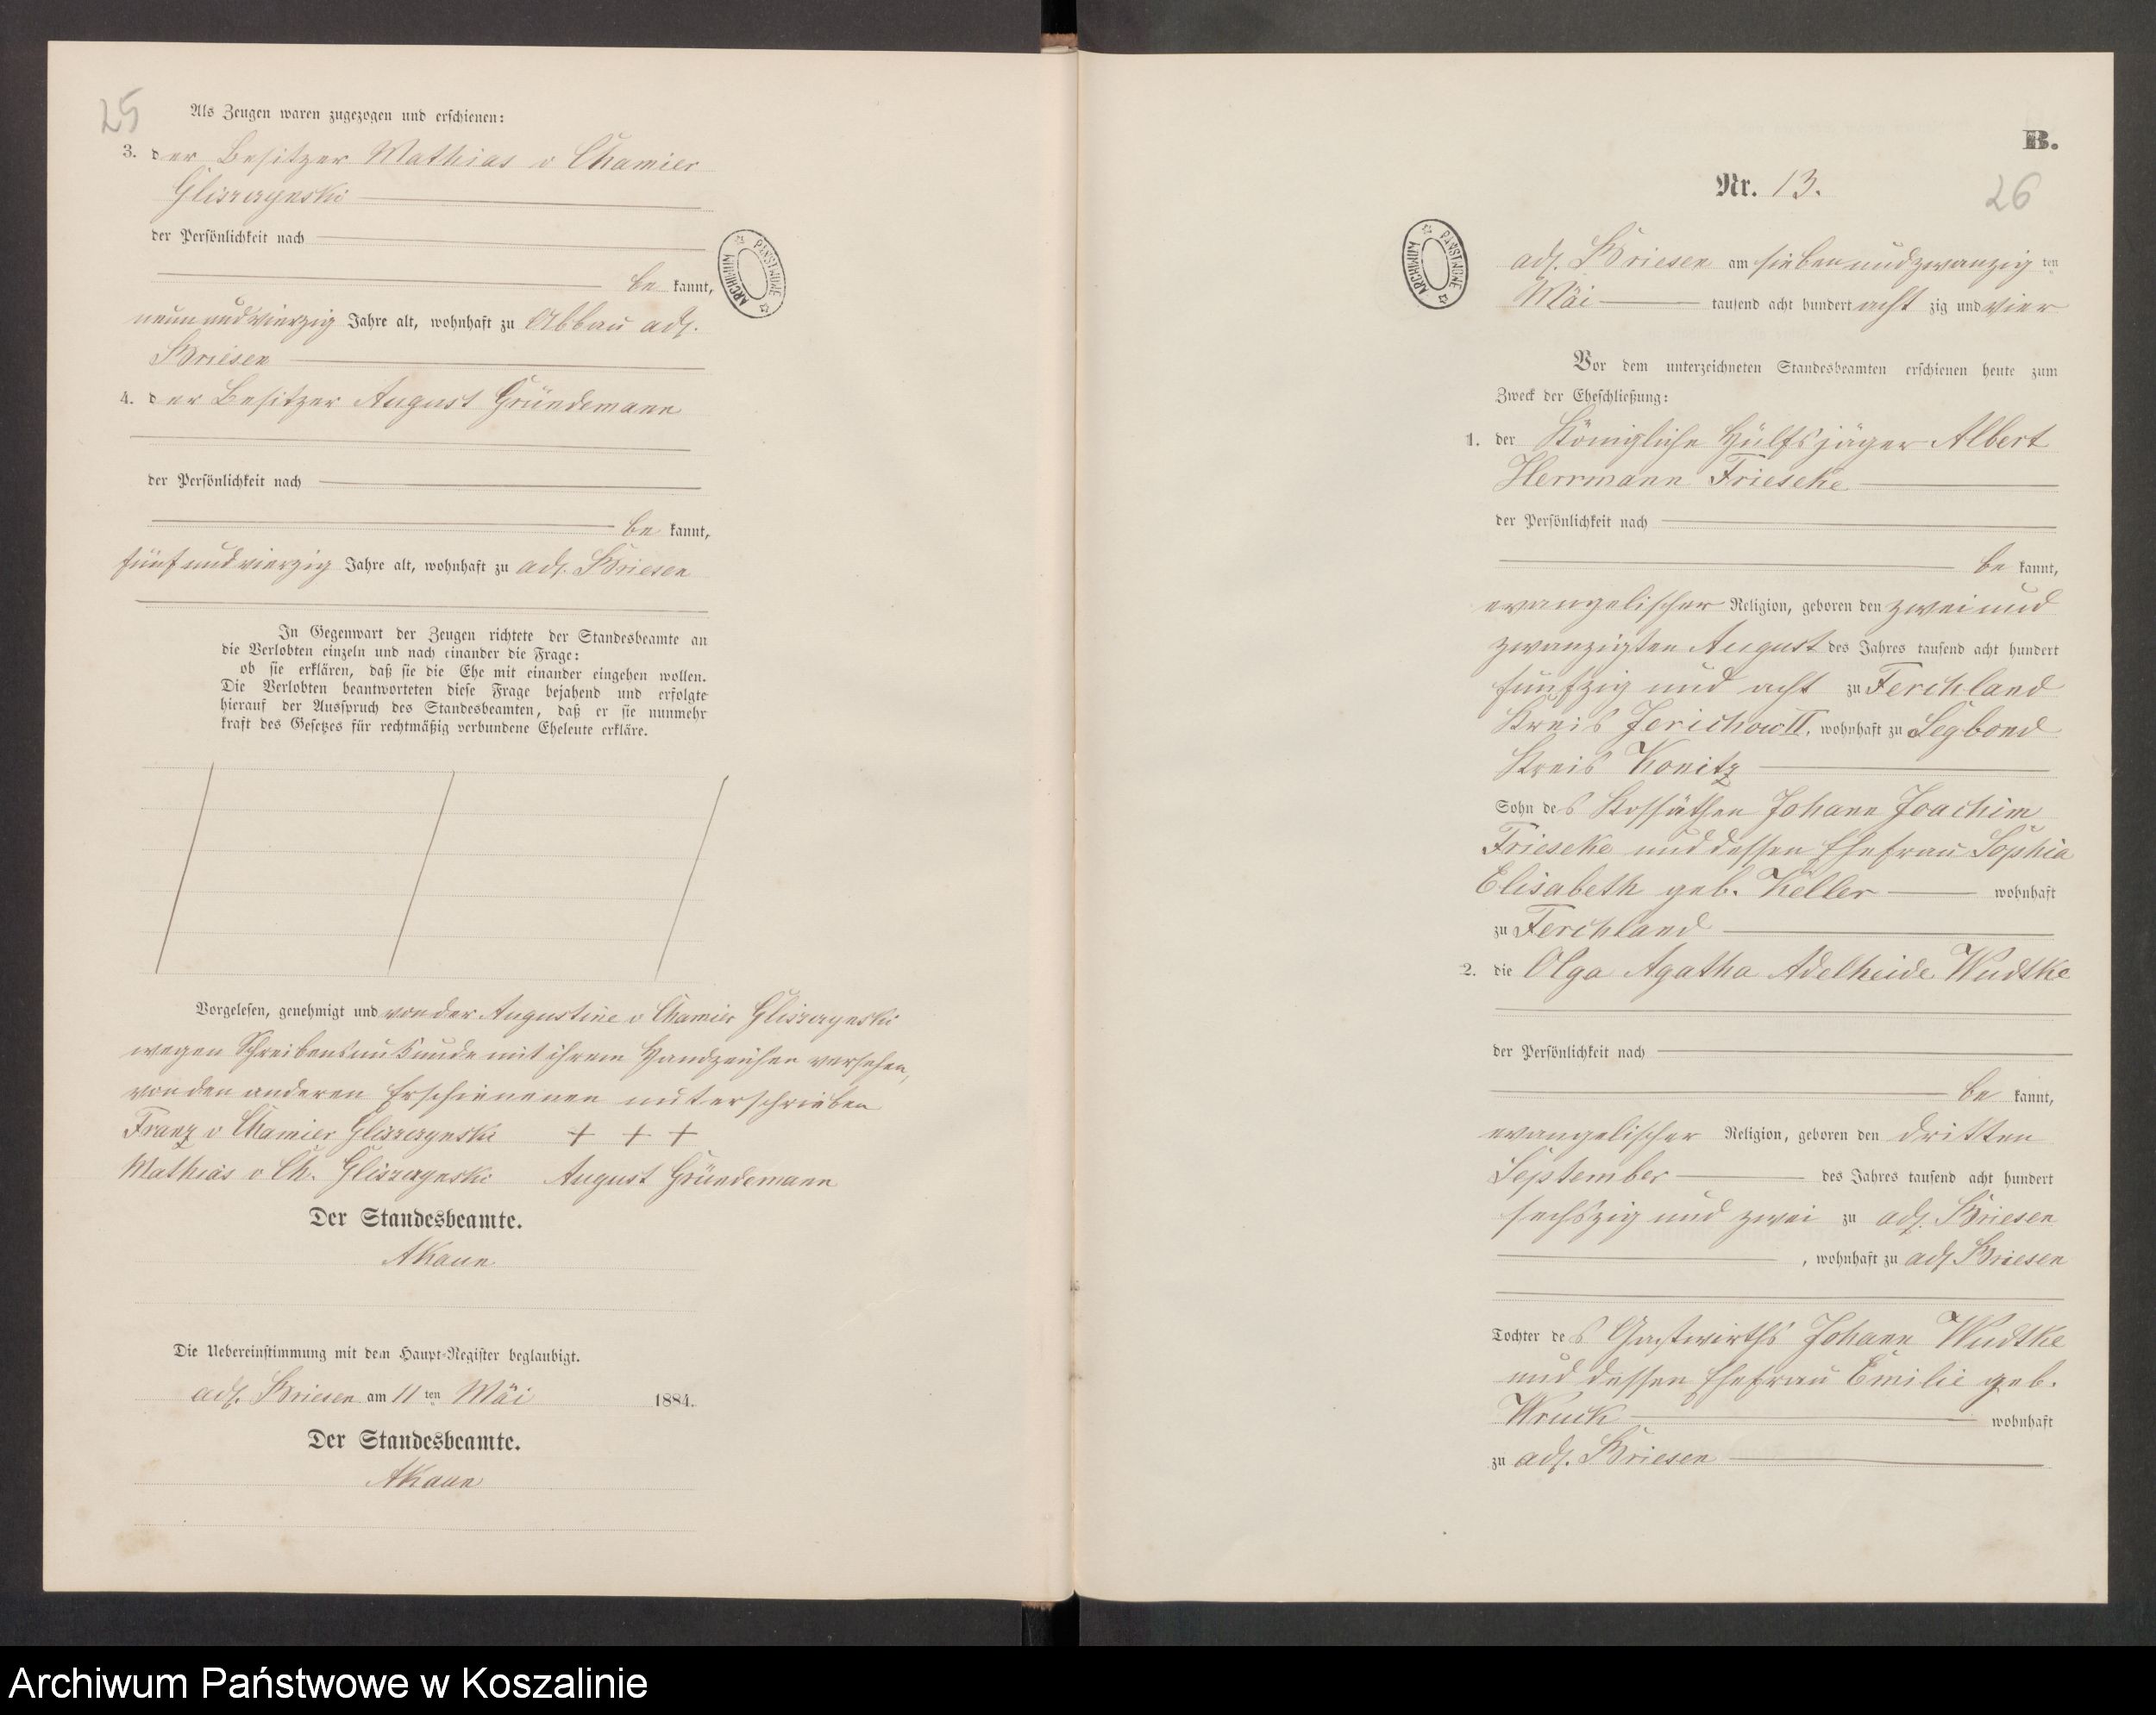 25
Als Zeugen waren zugezogen und erschienen:
3. der Besitzer Mathias v Chamier
Gliszczynski
der Persönlichkeit nach
be kannt,
neun und vierzig Jahre alt, wohnhaft zu Abbau adl.
Briesen
4. der Besitzer August Gründemann
der Persönlichkeit nach
be kannt,
fünf und vierzig Jahre alt, wohnhaft zu adl. Briesen
In Gegenwart der Zeugen richtete der Standesbeamte an
die Verlobten einzeln und nach einander die Frage:
ob sie erklären, daß sie die Ehe mit einander eingehen wollen.
Die Verlobten beantworteten diese Frage bejahend und erfolgte
hierauf der Ausspruch des Standesbeamten, daß er sie nunmehr
kraft des Gesetzes für rechtmäßig verbundene Eheleute erkläre.
Vorgelesen, genehmigt und von der Augustine v Chamier Gliszczynski
wegen Schreibensunkunde mit ihrem Handzeichen versehen,
von den anderen Erschienenen unterschrieben
Franz v Chamier Gliszczynski + + +
Mathias v Ch. Gliszczynski August Gründemann
Der Standesbeamte.
AKaun
Die Uebereinstimmung mit dem Haupt-Register beglaubigt.
adl. Briesen am 11 ten Mai 1884.
Der Standesbeamte.
AKaun
ARCHIWUM PAŃSTWOWE
B.
Nr. 13.
26
ARCHIWUM PAŃSTWOWE
adl. Briesen am sieben und zwanzig ten
Mai tausend acht hundert acht zig und vier
Vor dem unterzeichneten Standesbeamten erschienen heute zum
Zweck der Eheschließung:
1. der Königliche Hülfsjäger Albert
Herrmann Frieseke
der Persönlichkeit nach
be kannt,
evangelischer Religion, geboren den zwei und
zwanzigsten August des Jahres tausend acht hundert
fünfzig und acht zu Ferchland
Kreis Jerichow II, wohnhaft zu Legbond
Kreis Konitz
Sohn des Kossäthen Johann Joachim
Frieseke und dessen Ehefrau Sophia
Elisabeth geb. Keller wohnhaft
zu Ferchland
2. die Olga Agatha Adelheide Wudtke
der Persönlichkeit nach
be kannt,
evangelischer Religion, geboren den dritten
September des Jahres tausend acht hundert
sechszig und zwei zu adl. Briesen
, wohnhaft zu adl Briesen
Tochter des Gastwirths Johann Wudtke
und dessen Ehefrau Emilie geb.
Wruck wohnhaft
zu adl. Briesen
Archiwum Państwowe w Koszalinie